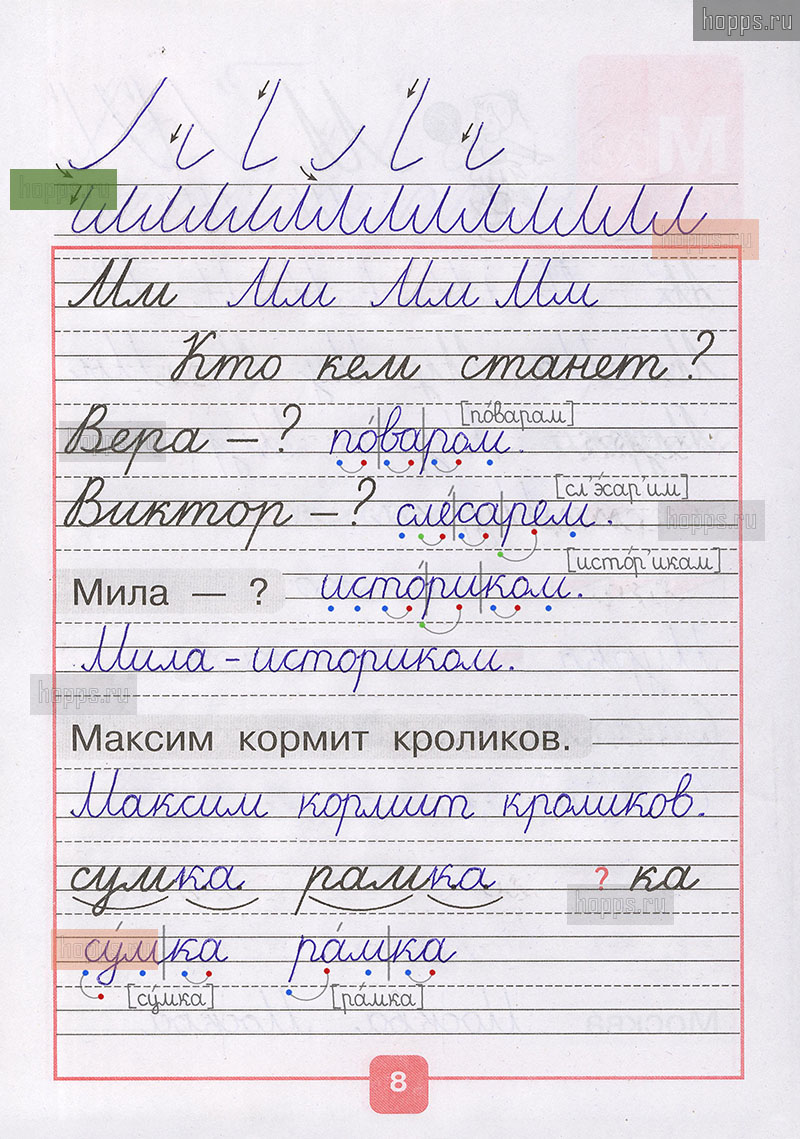 hopps.ru
м
hopps.ru
hopps.ru
Мм Мм Мм Мм
Кто кем станет?
[по́варам]
Вера – ? по́варом.
hopps.ru
[сл'э́сар'им]
Виктор – ? сле́сарем.
hopps.ru
[исто́р'икам]
Мила — ? исто́риком.
Мила – историком.
hopps.ru
Максим кормит кроликов.
Максим кормит кроликов.
сумка рамка ? ка
hopps.ru
су́м|ка ра́м|ка
hopps.ru
[су́мка] [ра́мка]
Москва
8